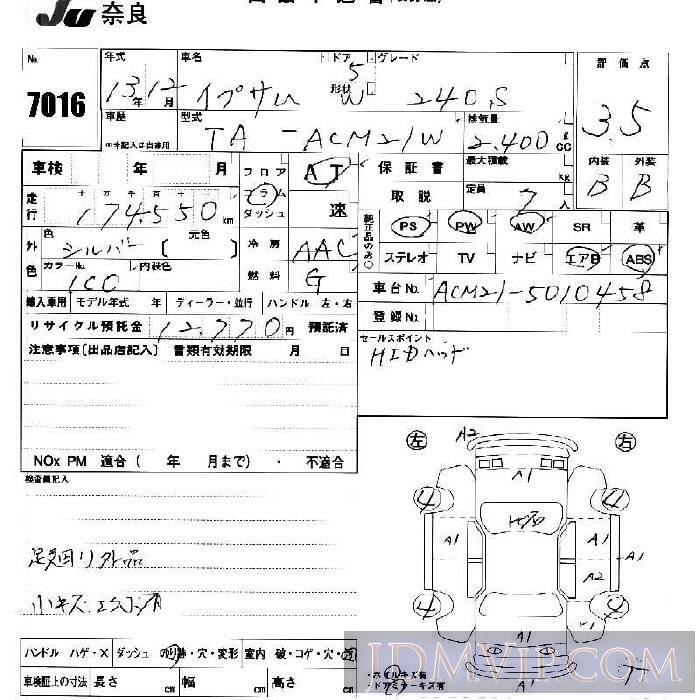 JU 奈良
No. 7016
年式 13年 12月
車名 イプサム
ドア 5
形状 W
グレード 240.S
評価点 3.5
車歴
※未記入は自家用
型式 TA - ACM21W
排気量 2.400 G CC
車検 年 月
フロア AT
保証書
最大積載 KG
内装 外装
B B
走行 十 万 千 百 十
174,550 km
コラム
ダッシュ 速
取説
定員 7人
外色
色 シルバー
元色 [ ]
冷房 AAC
純正品のみ○
PS PW AW SR 革
ステレオ TV ナビ エアB ABS
カラーNo. 1C0
内装色
燃料 G
車台No. ACM21-5010458
輸入車用 モデル年式 年 ディーラー・並行 ハンドル 左・右
登録No.
リサイクル預託金 12,770 円 預託済
セールスポイント
HIDヘッド
注意事項〔出品店記入〕 書類有効期限 月 日
NOx PM 適合 ( 年 月まで) ・ 不適合
検査員記入
足廻り外品
小キズ エクボ有
左 右
A2
A1
4 4
A1 A1 A1
A2
4 4
A1
ハンドル ハゲ・× ダッシュ のり跡・穴・変形 室内 破・コゲ・穴・
車検証上の寸法 長さ cm 幅 cm 高さ cm
・ホイルキズ有
・ドアミラーキズ有
T
JDMVIP.COM